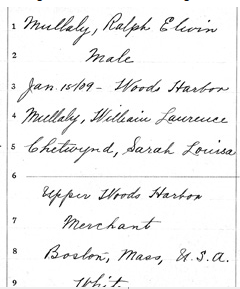 1 Mullaly, Ralph Elwin
2 Male
3 Jan. 15/09 - Woods Harbor
4 Mullaly, William Laurence
5 Chetwynd, Sarah Louisa
6
Upper Woods Harbor
7 Merchant
8 Boston, Mass, U.S.A.
9 Whit.